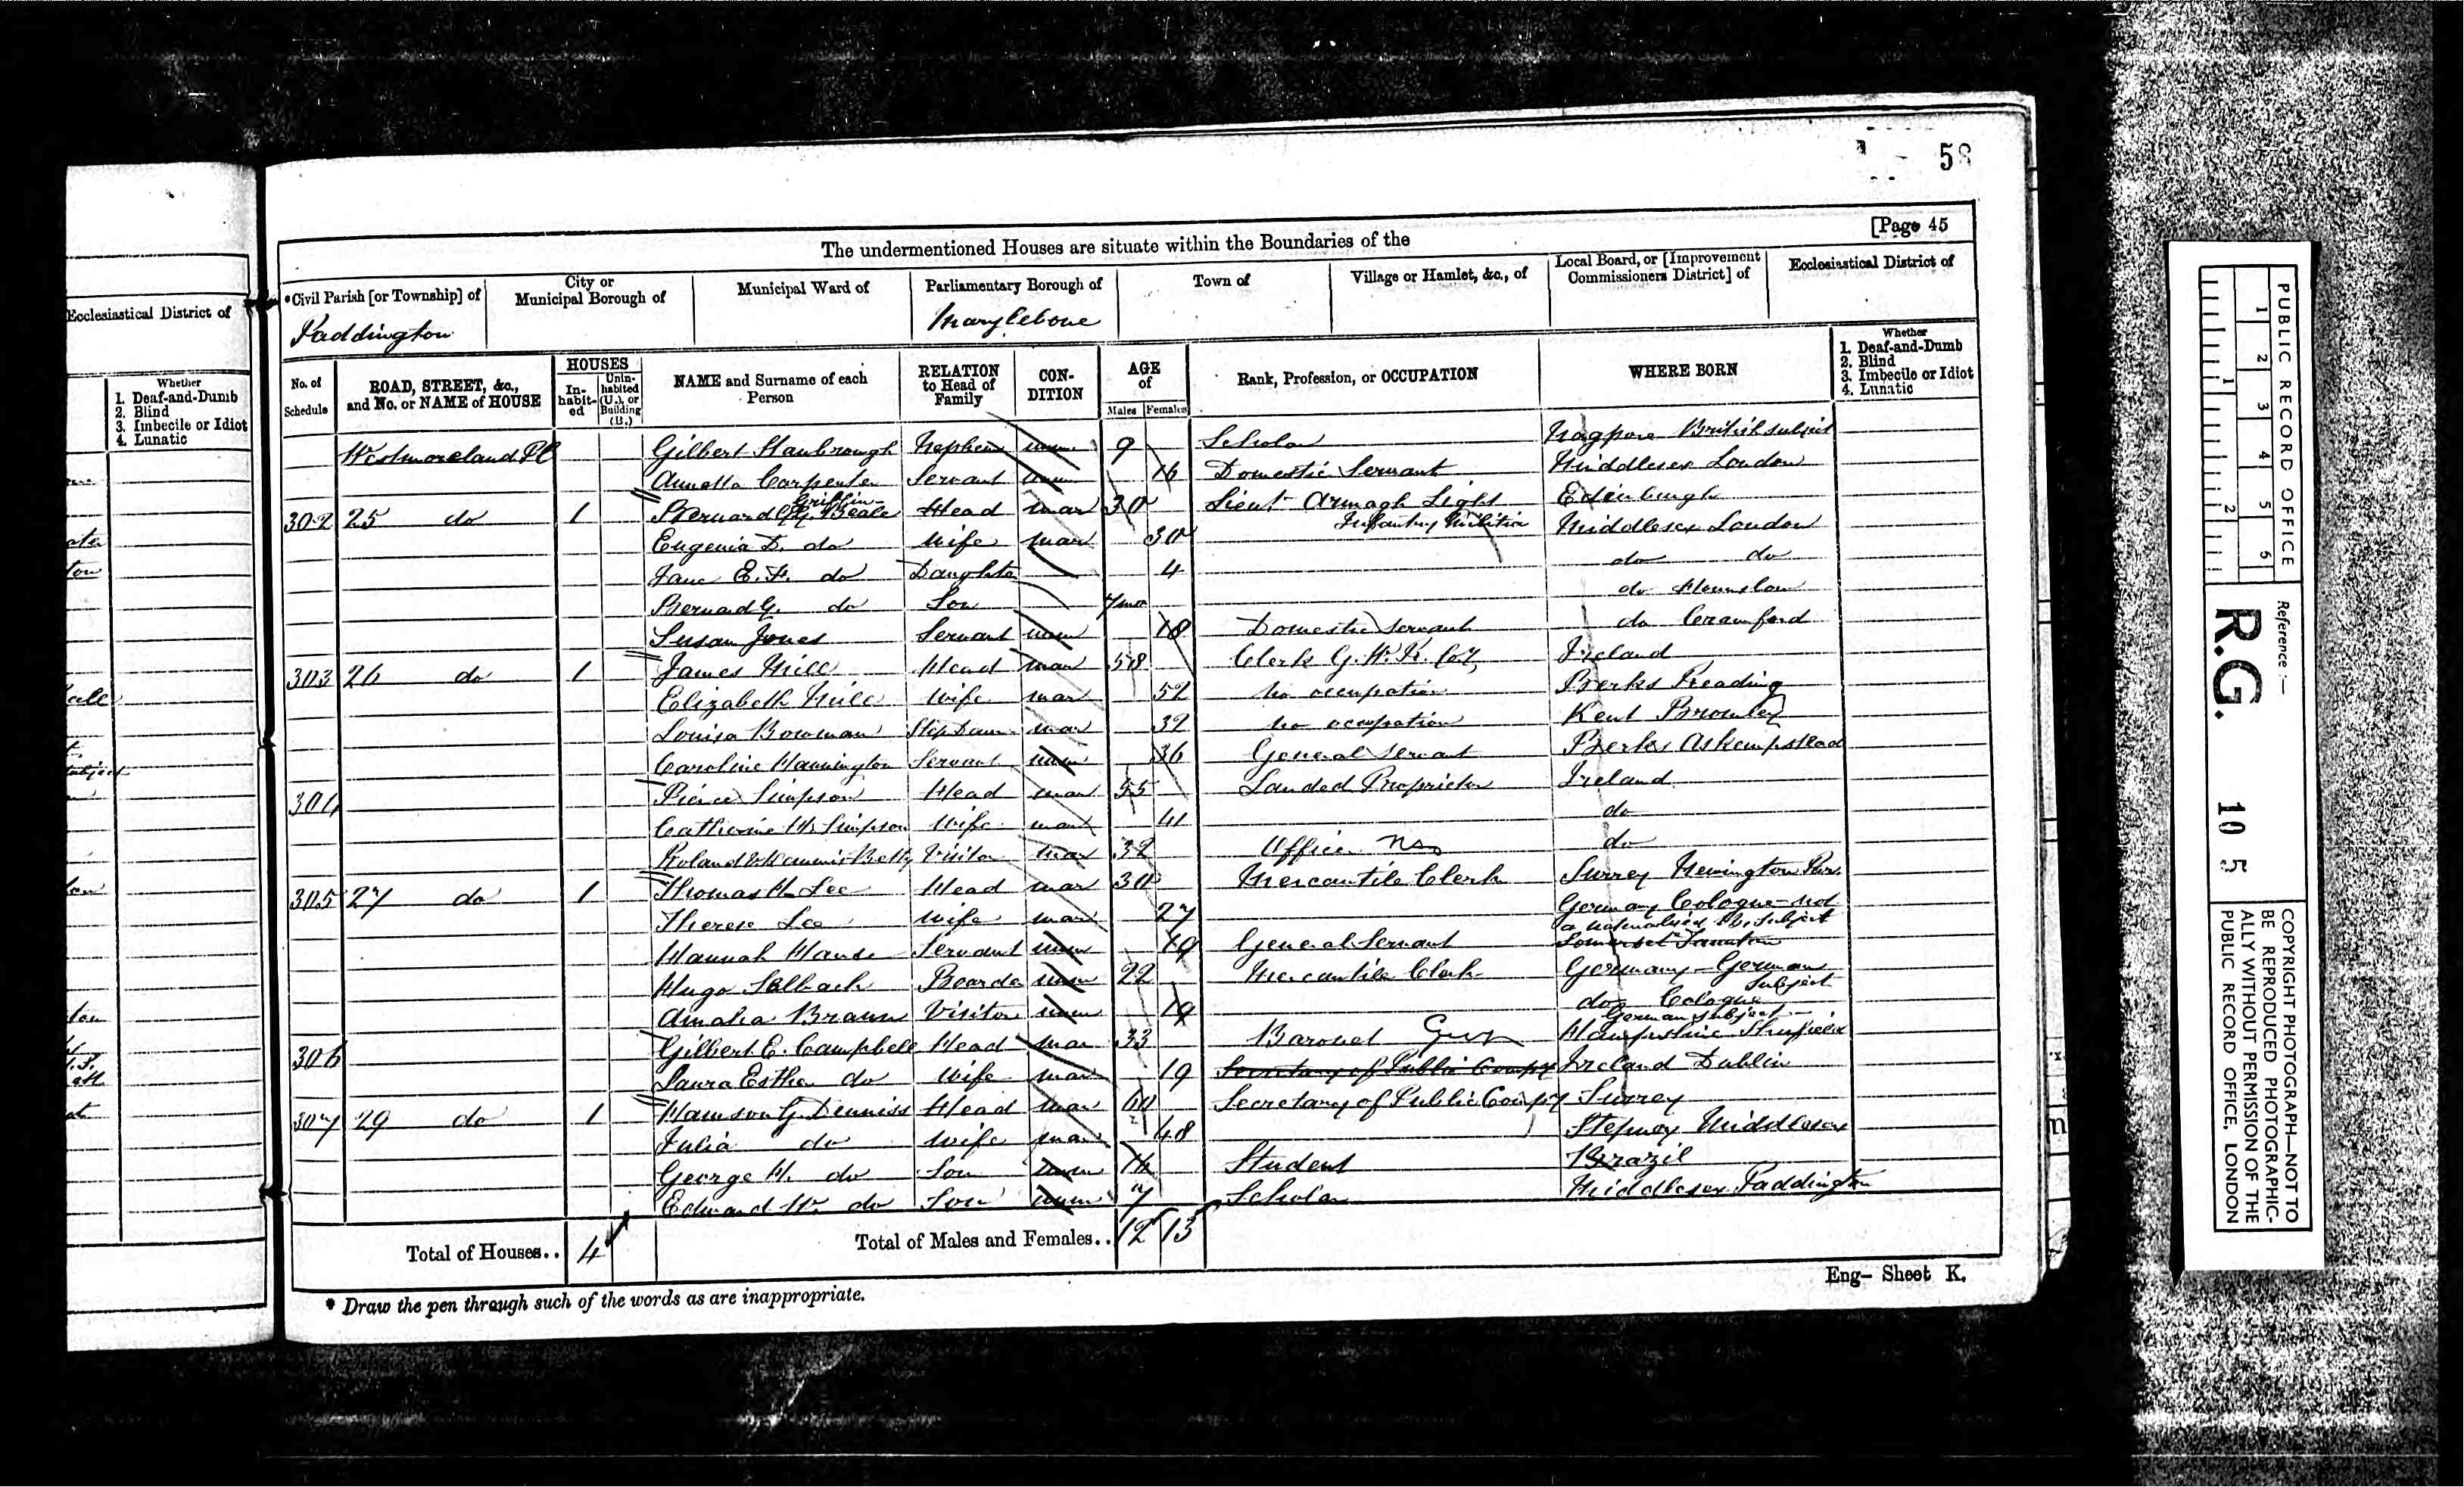 58
[Page 45
The undermentioned Houses are situate within the Boundaries of the
*Civil Parish [or Township] of
City or Municipal Borough of
Municipal Ward of
Parliamentary Borough of
Town of
Village or Hamlet, &c., of
Local Board, or [Improvement Commissioners District] of
Ecclesiastical District of
Paddington
Marylebone
No. of Schedule
ROAD, STREET, &c., and No. or NAME of HOUSE
HOUSES
In-habit-ed
Unin-habited (U.), or Building (B.)
NAME and Surname of each Person
RELATION to Head of Family
CON-DITION
AGE of
Males
Females
Rank, Profession, or OCCUPATION
WHERE BORN
Whether
1. Deaf-and-Dumb
2. Blind
3. Imbecile or Idiot
4. Lunatic
Westmoreland Pl Gilbert Nephew unm 9 Scholar Nagpore British subject
Annetta Carpenter Servant unm 16 Domestic Servant Middlesex London
302 25 do 1 Bernard G. Griffin-Beale Head mar 30 Lieut Armagh Light Infantry Militia Edinburgh
Eugenia D. do Wife mar 30 Middlesex London
Jane E. F. do Daughter 4 do do
Bernard G. do Son 7mo do Hounslow
Susan Jones Servant unm 18 Domestic Servant do Cranford
303 26 do 1 James Head mar 58 Clerk G. W. R. Coy Ireland
Elizabeth Wife mar 52 No occupation Berks Reading
Louisa Bowman Step Daur mar 32 no occupation Kent Bromley
Caroline Hannington Servant unm 36 General Servant Berks Askempstead
304 Pierce Simpson Head mar 55 Landed Proprietor Ireland
Catherine W. Simpson Wife mar 41 do
Roland Visitor mar 32 Office do
305 27 do 1 Thomas H. Lee Head mar 30 Mercantile Clerk Surrey Newington
Therese Lee Wife mar 27 Germany Cologne not a naturalised Br. Subject
Hannah Servant unm 19 General Servant Somerset Taunton
Hugo Selbach Boarder unm 22 Mercantile Clerk Germany - German Subject
Amalia Braun Visitor unm 19 do Cologne German Subject
306 Gilbert E. Campbell Head mar 33 Baronet Hampshire
Laura Esther do Wife mar 19 Secretary of Public Compy Ireland Dublin
307 29 do 1 Hamson G. Denniss Head mar 60 Secretary of Public Compy Surrey
Julia do Wife mar 48 Stepney Middlesex
George H. do Son unm 16 Student Brazil
Edward W. do Son unm 7 Scholar Middlesex Paddington
Total of Houses.. 4
Total of Males and Females.. 12 13
* Draw the pen through such of the words as are inappropriate.
Eng- Sheet K.
Ecclesiastical District of
Whether
1. Deaf-and-Dumb
2. Blind
3. Imbecile or Idiot
4. Lunatic
1 2 3 4 5 6
1 2
PUBLIC RECORD OFFICE
Reference :-
R.G. 10 5
COPYRIGHT PHOTOGRAPH—NOT TO
BE REPRODUCED PHOTOGRAPHIC-
ALLY WITHOUT PERMISSION OF THE
PUBLIC RECORD OFFICE, LONDON